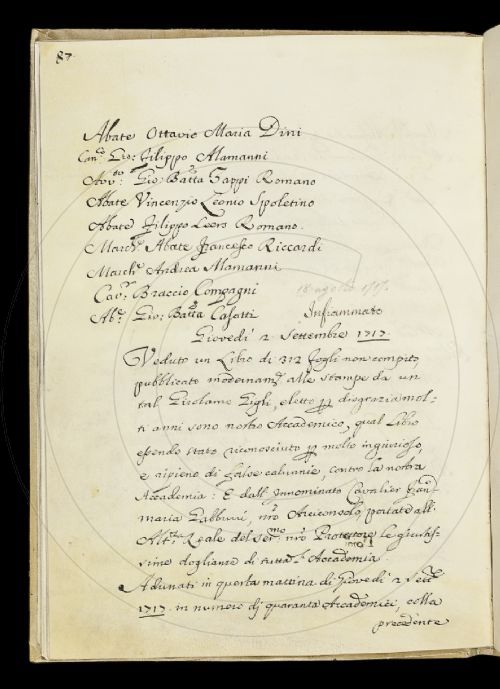 87
Abate Ottavio Maria Dini
Can.co Gio: Filippo Alamanni
Avv.do Gio: Batta Zappi Romano
Abate Vincenzio Leonio Spoletino
Abate Filippo Leers Romano.
March.e Abate Francesco Riccardi
March.e Andrea Alamanni
Cav.r Braccio Compagni
18 agosto 1717.
Ab.e Gio: Batta Casotti Infiammato
Giovedì 2. Settembre 1717
Veduto un Libro di 312 fogli non compito,
pubblicato modernam.e alle stampe da un
tal Girolamo Gigli, eletto p disgrazia mol-
ti anni sono nostro Accademico, qual Libro
essendo stato riconosciuto p molto ingiurioso,
e ripieno di false calunnie, contro la nostra
Accademia: E dall' Innominato Cavalier Fran-
maria Gabburri, nro Arciconsolo, portate all'
Alt.a Reale del Ser.mo nro Protettore le giustis-
sime doglianze di tutta l'Accademia.
Adunati in questa mattina di Giovedì 2 Sett.e
1717. in numero dj quaranta Accademici, colla
precedente